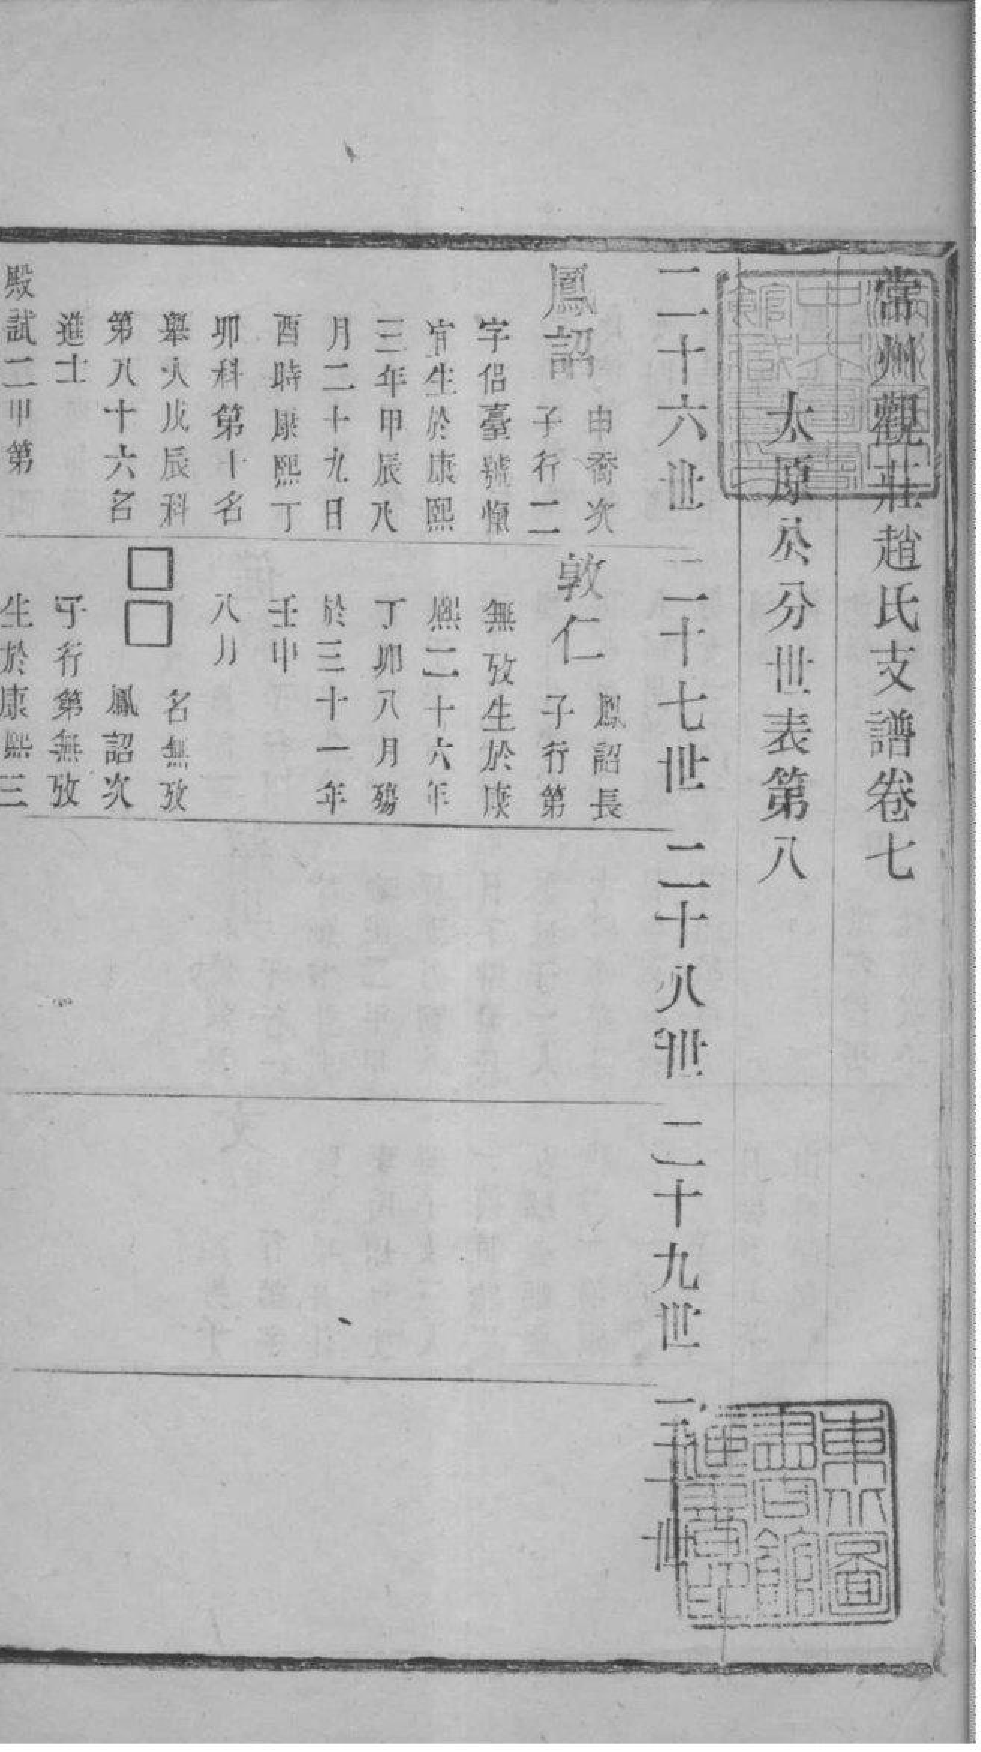 常州觀莊趙氏支譜卷七
太原公分世表第八
二十六世
二十七世
二十八世
二十九世
三十世
鳳詔
申喬次
子行二
字侶臺號愼
宜生於康熙
三年甲辰八
月二十九日
酉時康熙丁
卯科第十名
舉人戊辰科
第八十六名
進士
殿試二甲第
敦仁
鳳詔長
子行第
無攷生於康
熙二十六年
丁卯八月殤
於三十一年
壬申
八月
□□
名無攷
鳳詔次
子行第無攷
生於康熙三
東北圖
書館所